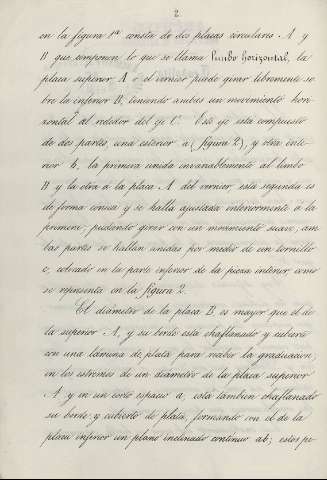 2
en la figura 1ª consta de dos placas circulares A y
B que componen lo que se llama limbo horizontal, la
placa superior A ó el vernier puede girar libremente so
bre la inferior B, teniendo ambas un movimiento hori-
zontal al rededor del eje C. Este eje esta compuesto
de dos partes, una esterior a (figura 2), y otra inte-
rior b, la primera unida invariablemente al limbo
B y la otra á la placa A del vernier, esta segunda es
de forma cónica y se halla ajustada interiormente á la
primera, pudiendo girar con un movimiento suave, am
bas partes se hallan unidas por medio de un tornillo
c, colocado en la parte inferior de la pieza interior como
se representa en la figura 2.
El diámetro de la placa B es mayor que el de
la superior A, y su borde esta chaflanado y cubierto
con una lámina de plata para recibir la graduacion,
en los estremos de un diámetro de la placa superior
A y en un corto espacio a, está tambien chaflanado
su borde y cubierto de plata, formando con el de la
placa inferior un plano inclinado continuo ab; estos pe